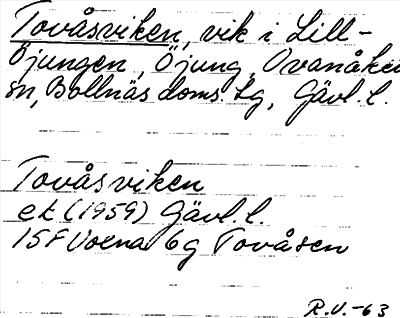 Tovåsviken, vik i Lill-
Öjungen, Öjung, Ovanåker
sn, Bollnäs doms. tg, Gävl. l.
Tovåsviken
ek (1959) Gävl. l.
15F Voxna 6g Tovåsen
R.V.-63